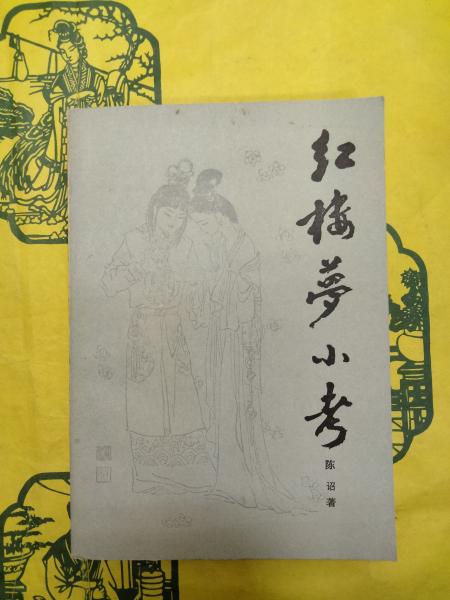 红楼夢小考
陈诏著